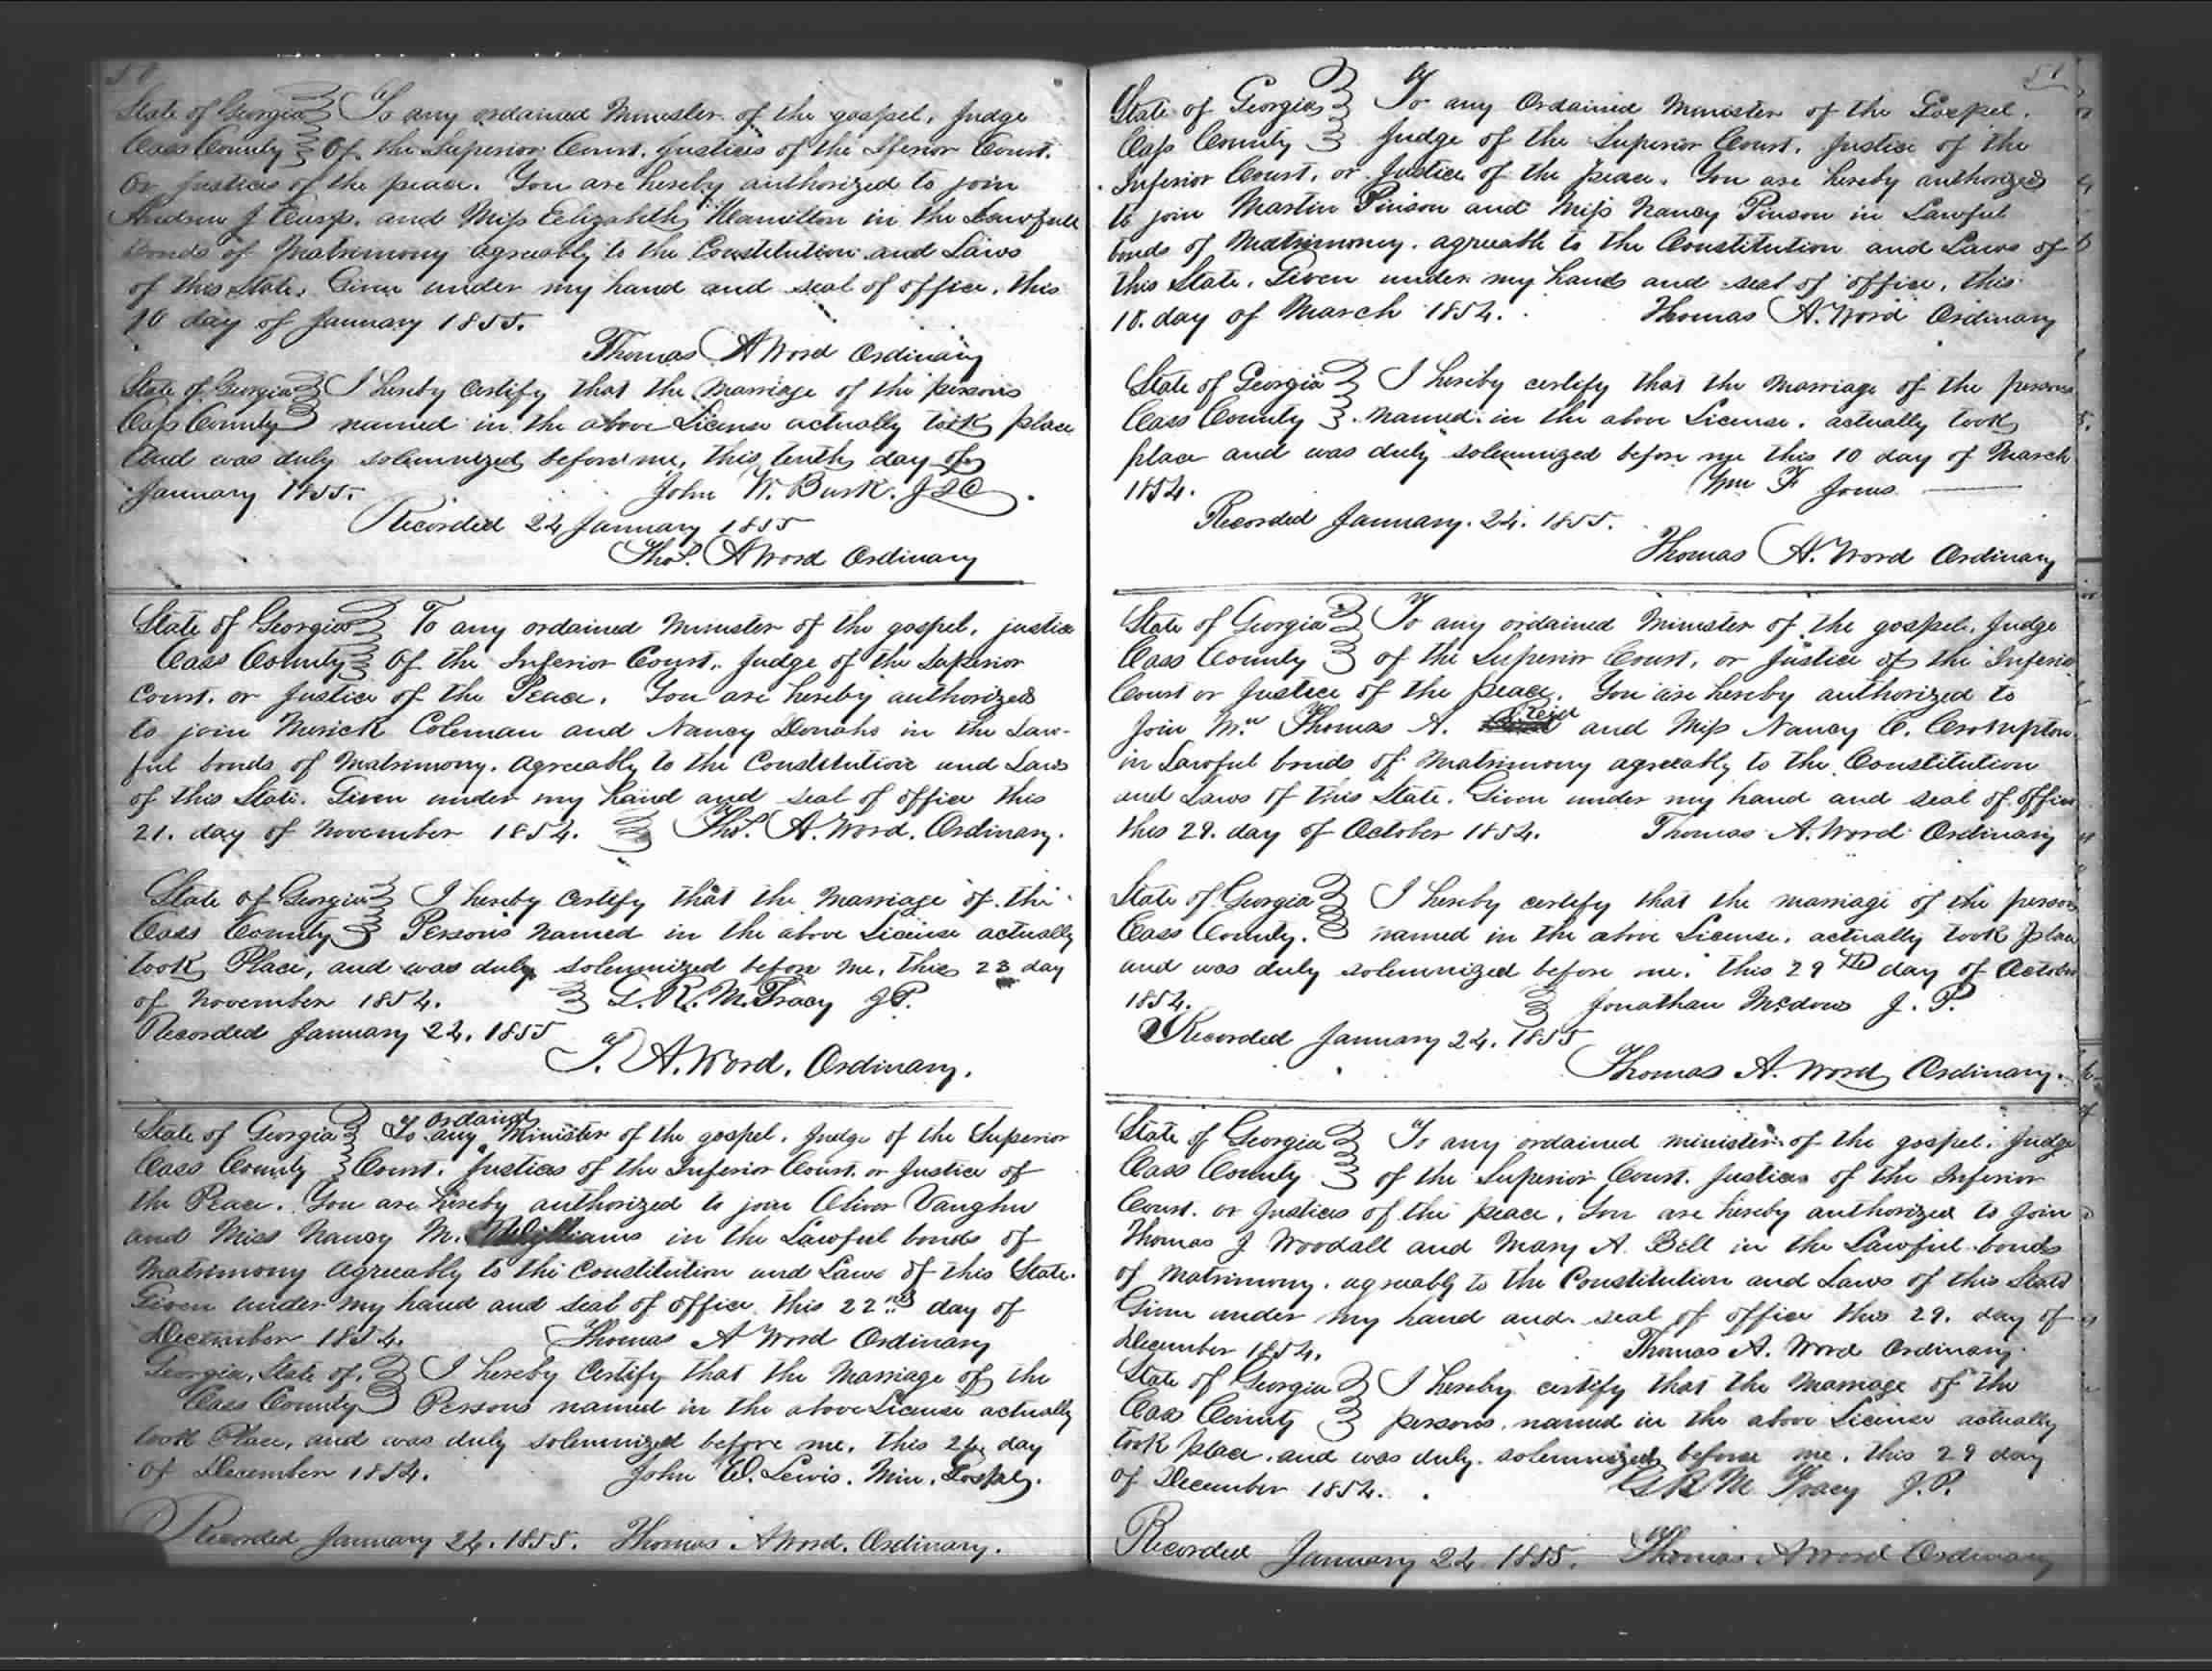 50
State of Georgia To any ordained Minister of the gospel, Judge
Cass County Of the Superior Court, justices of the Iferior Court.
Or justices of the peace. You are hereby authorized to join
Andrew J. and Miss Elizabeth Hamilton in the Lawfull
bonds of Matrimony agreeably to the Constitution and Laws
of this State. Given under my hand and seal of office, this
10 day of January 1855.
Thomas A Word Ordinary
State of Georgia I hereby certify that the Marriage of the persons
Cass County named in the above License actually took place
And was duly solemnized before me, this tenth day of
January 1855. John W. Burk. J I C
Recorded 24 January 1855
Thos. A Word Ordinary
State of Georgia To any ordained Minister of the gospel, justice
Cass County Of the Inferior Court, Judge of the Superior
Court, or Justice of the Peace. You are hereby authorized
to join Merick Coleman and Nancy Donaho in the Law-
ful bonds of Matrimony. agreeably to the Constitution and Laws
of this State. Given under my hand and seal of office this
21. day of November 1854. Thos. A. Word. Ordinary.
State of Georgia I hereby certify that the Marriage of the
Cass County Persons named in the above License actually
took Place, and was duly solemnized before me, this 23 day
of November 1854. G. R. M. Tracy J.P.
Recorded January 24. 1855
T. A. Word. Ordinary.
State of Georgia To any ordaind Minister of the gospel, Judge of the Superior
Cass County Court. Justices of the Inferior Court. or Justice of
the Peace. You are hereby authorized to join Oliver Vaughn
and Miss Nancy M. in the Lawful bonds of
Matrimony agreeably to the Constitution and Laws of this State.
Given under my hand and seal of office this 22nd day of
December 1854. Thomas A Word Ordinary
Georgia, State of, I hereby Certify that the Marriage of the
Cass County Persons named in the above License actually
took Place, and was duly solemnized before me, this 24 day
of December 1854. John W. Lewis. Min. Gospel.
Recorded January 24. 1855. Thomas A Word. Ordinary.
51
State of Georgia To any Ordained Minister of the Gospel,
Cass County Judge of the Superior Court, Justice of the
Inferior Court, or Justice of the peace. You are hereby authorized
to join Martin Pinson and Miss Nancy Pinson in Lawful
bonds of Matrimony. agreeable to the Constitution and Laws of
this State. Given under my hand and seal of office, this
10. day of March 1854. Thomas A. Word Ordinary
State of Georgia I hereby certify that the Marriage of the persons
Cass County named in the above License, actually took
place and was duly solemnized before me this 10 day of March
1854. Wm F Jones
Recorded January. 24. 1855.
Thomas A. Word Ordinary
State of Georgia To any ordained Minister of the gospel, Judge
Cass County of the Superior Court, or Justice of the Inferior
Court or Justice of the peace. You are hereby authorized to
Join Mr. Thomas A. Reid and Miss Nancy C. Crompton
in Lawful bonds of Matrimony agreeably to the Constitution
and Laws of this State. Given under my hand and seal of office
this 29. day of October 1854. Thomas A. Word Ordinary
State of Georgia I hereby certify that the marriage of the persons
Cass County. named in the above License, actually took place
and was duly solemnized before me, this 29th day of October
1854. Jonathan McDow J. P.
Recorded January 24. 1855
Thomas A. Word Ordinary.
State of Georgia To any ordained minister of the gospel, Judge
Cass County of the Superior Court. Justices of the Inferior
Court. or Justices of the peace, You are hereby authorized to join
Thomas J Woodall and Mary A. Bell in the Lawful bonds
of Matrimony. agreeably to the Constitution and Laws of this State
Given under my hand and seal of office this 29. day of
December 1854. Thomas A. Word Ordinary.
State of Georgia I hereby certify that the Marriage of the
Cass County persons named in the above License actually
took place, and was duly solemnized before me, this 29 day
of December 1854. G R M Tracy J.P.
Recorded January 24 1855. Thomas A Word Ordinary